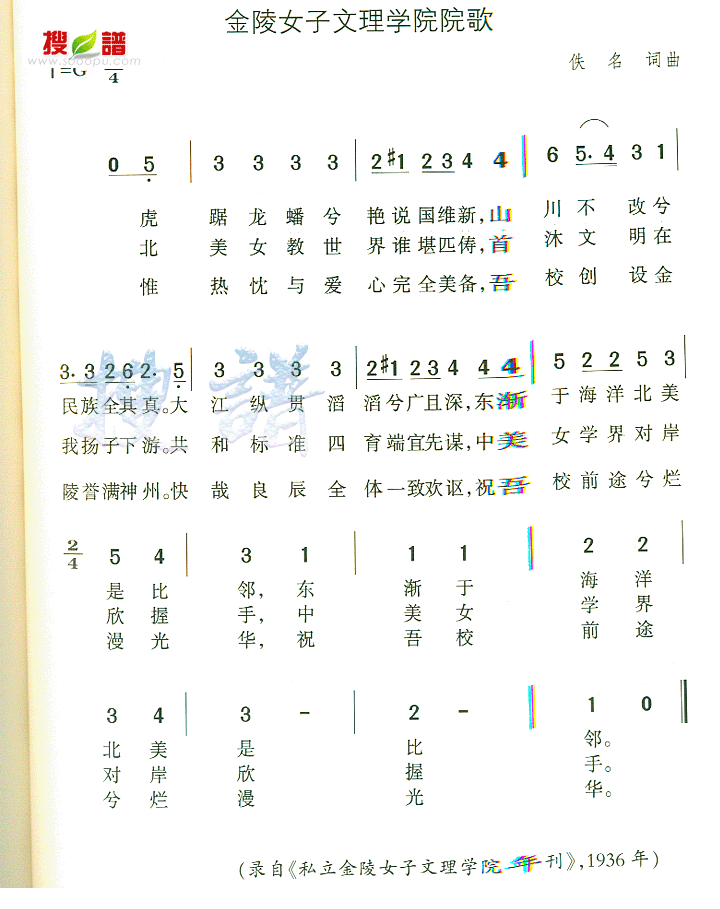 金陵女子文理学院院歌
搜谱
www.sooopu.com
1=G 4
佚 名 词曲
0 5 | 3 3 3 3 | 2 #1 2 3 4 4 | 6 5. 4 3 1 |
虎 踞 龙 蟠 兮 艳 说 国 维 新, 山 川 不 改 兮
北 美 女 教 世 界 谁 堪 匹 俦, 首 沐 文 明 在
惟 热 忱 与 爱 心 完 全 美 备, 吾 校 创 设 金
3. 3 2 6 2. 5 | 3 3 3 3 | 2 #1 2 3 4 4 4 | 5 2 2 5 3 |
民族全其真。大 江 纵 贯 滔 滔兮广且深, 东渐 于海洋北美
我扬子下游。共 和 标 准 四 育端宜先谋, 中美 女学界对岸
陵誉满神州。快 哉 良 辰 全 体一致欢讴, 祝吾 校前途兮烂
2/4 5 4 | 3 1 | 1 1 | 2 2 |
是 比 邻, 东 渐 于 海 洋
欣 握 手, 中 美 女 学 界
漫 光 华, 祝 吾 校 前 途
3 4 | 3 - | 2 - | 1 0 ‖
北 美 是 比 邻。
对 岸 欣 握 手。
兮 烂 漫 光 华。
(录自《私立金陵女子文理学院年刊》, 1936 年)